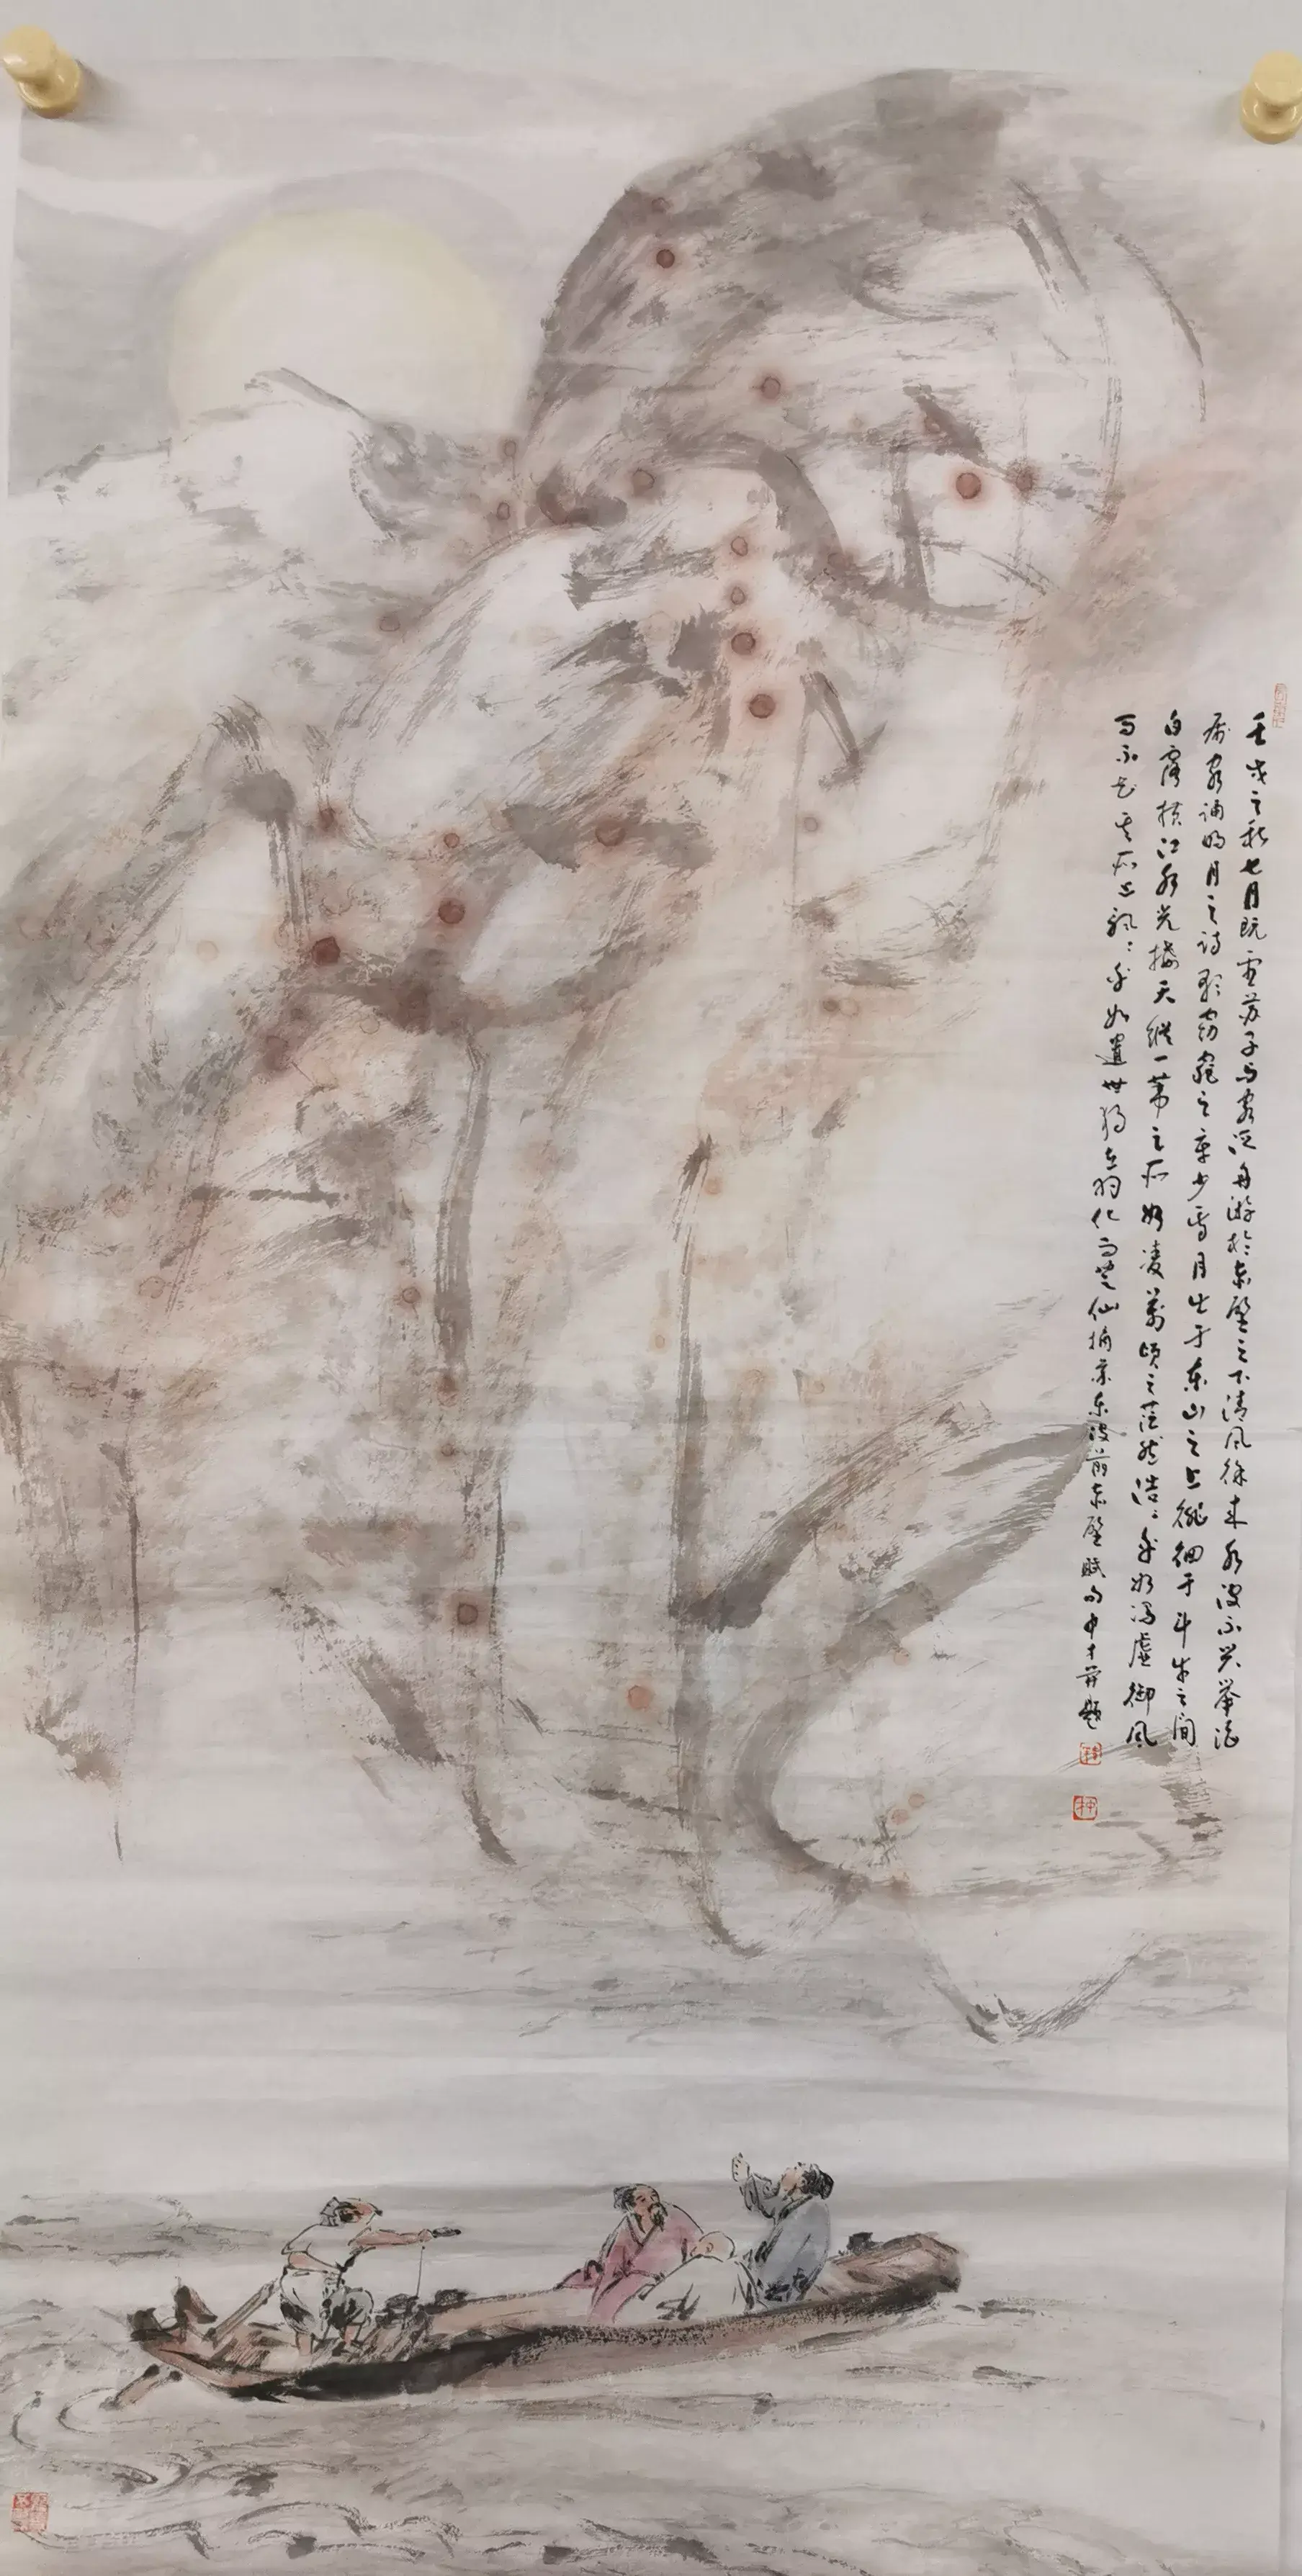 壬戌之秋七月既望苏子与客泛舟游於赤壁之下清风徐来水波不兴举酒
属客诵明月之诗歌窈窕之章少焉月出于东山之上徘徊于斗牛之间
白露横江水光接天纵一苇之所如凌萬顷之茫然浩浩乎如冯虚御风
而不知其所止飘飘乎如遗世独立羽化而登仙摘录东坡前赤壁赋句中才并题